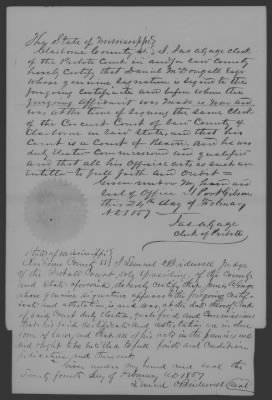 The State of Mississippi
Claiborne County ss. I, Jas. A. Gage clerk
of the Probate Court in and for said County
hereby Certify that Daniel McDougall Esqr
whose genuine signature is signed to the
foregoing Certificate and before whom the
foregoing Affidavit was made is now and
was at the time of signing the same Clerk
of the Circuit Court of said County of
Claiborne in said State, and that his
Court is a Court of Record. and he was
duly Elected Commissioned and qualified
and that all his Official acts as such are
entitled to full faith and Credit
Given under my hand and
seal of Office at Port Gibson
this 24th day of February
AD 1857
Jas. A. Gage
Clerk of Probate
State of Mississippi
Claiborne County ss I, Limuel C Bridewell Judge
of the Probate Court, sole presiding, of the County
and State aforesaid, do hereby certify that James A Gage
whose genuine signature appears to the foregoing certifi-
cate and attestation is and was, at the date thereof Clerk
of said Court duly elected, qualified and Commissioned
that his said certificate and attestation are in due
form of law, and that all of his acts in the premises are
and ought to be entitled to full faith and Credit in
judicature and thereout.
Given under my hand and seal the
Twenty fourth day of February AD. 1857
Limuel C Bridewell Seal